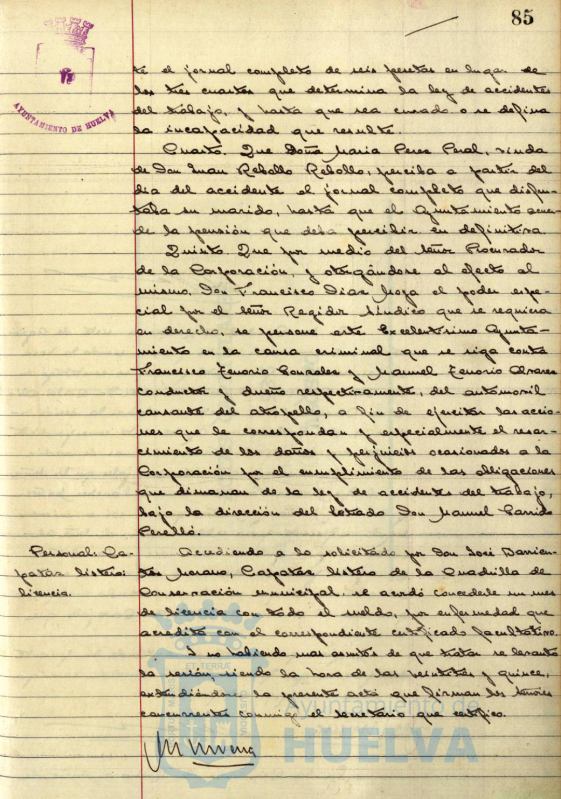 85
AYUNTAMIENTO DE HUELVA
te el jornal completo de seis pesetas en lugar de
los tres cuartos que determina la ley de accidentes
del trabajo, y hasta que sea curado o se defina
la incapacidad que resulte.
Cuarto. Que Doña Maria Perez Peral, viuda
de Don Juan Rebollo Rebollo, perciba a partir del
dia del accidente el jornal completo que disfru-
taba su marido, hasta que el Ayuntamiento acuer-
de la pensión que deba percibir en definitiva.
Quinto. Que por medio del señor Procurador
de la Corporación, y otorgándose al efecto al
mismo, Don Francisco Diaz Moya el poder espe-
cial por el señor Regidor Sindico que se requiera
en derecho, se persone este Excelentisimo Ayunta-
miento en la causa criminal que se siga contra
Francisco Tenorio Gonzalez y Manuel Tenorio Alvarez
conductor y dueño respectivamente, del automovil
causante del atropello, a fin de ejercitar las accio-
nes que le correspondan y especialmente el resar-
cimiento de los daños y perjuicios ocasionados a la
Corporación por el cumplimiento de las obligaciones
que dimanan de la ley de accidentes del trabajo,
bajo la dirección del Letrado Don Manuel Garrido
Perelló.
Personal: Ca-
pataz listero:
licencia.
Accediendo a lo solicitado por Don José Barrien-
tos Morano, Capataz listero de la Cuadrilla de
Conservación municipal, se acordó concederle un mes
de licencia con todo el sueldo, por enfermedad que
acredita con el correspondiente certificado facultativo.
Y no habiendo mas asuntos de que tratar se levantó
la sesión, siendo la hora de las veintitres y quince,
extendiéndose la presente acta que firman los señores
concurrentes conmigo el Secretario que certifico.
Ayuntamiento de
HUELVA